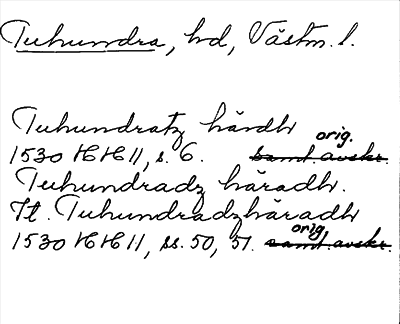 Tuhundra, hd, Västm. l.
Tuhundratz härdh
orig.
1530 HH 11, s. 6. samt. avskr.
Tuhundradz häradh.
It. Tuhundradzhäradh
orig.
1530 HH 11, ss. 50, 51. samt. avskr.